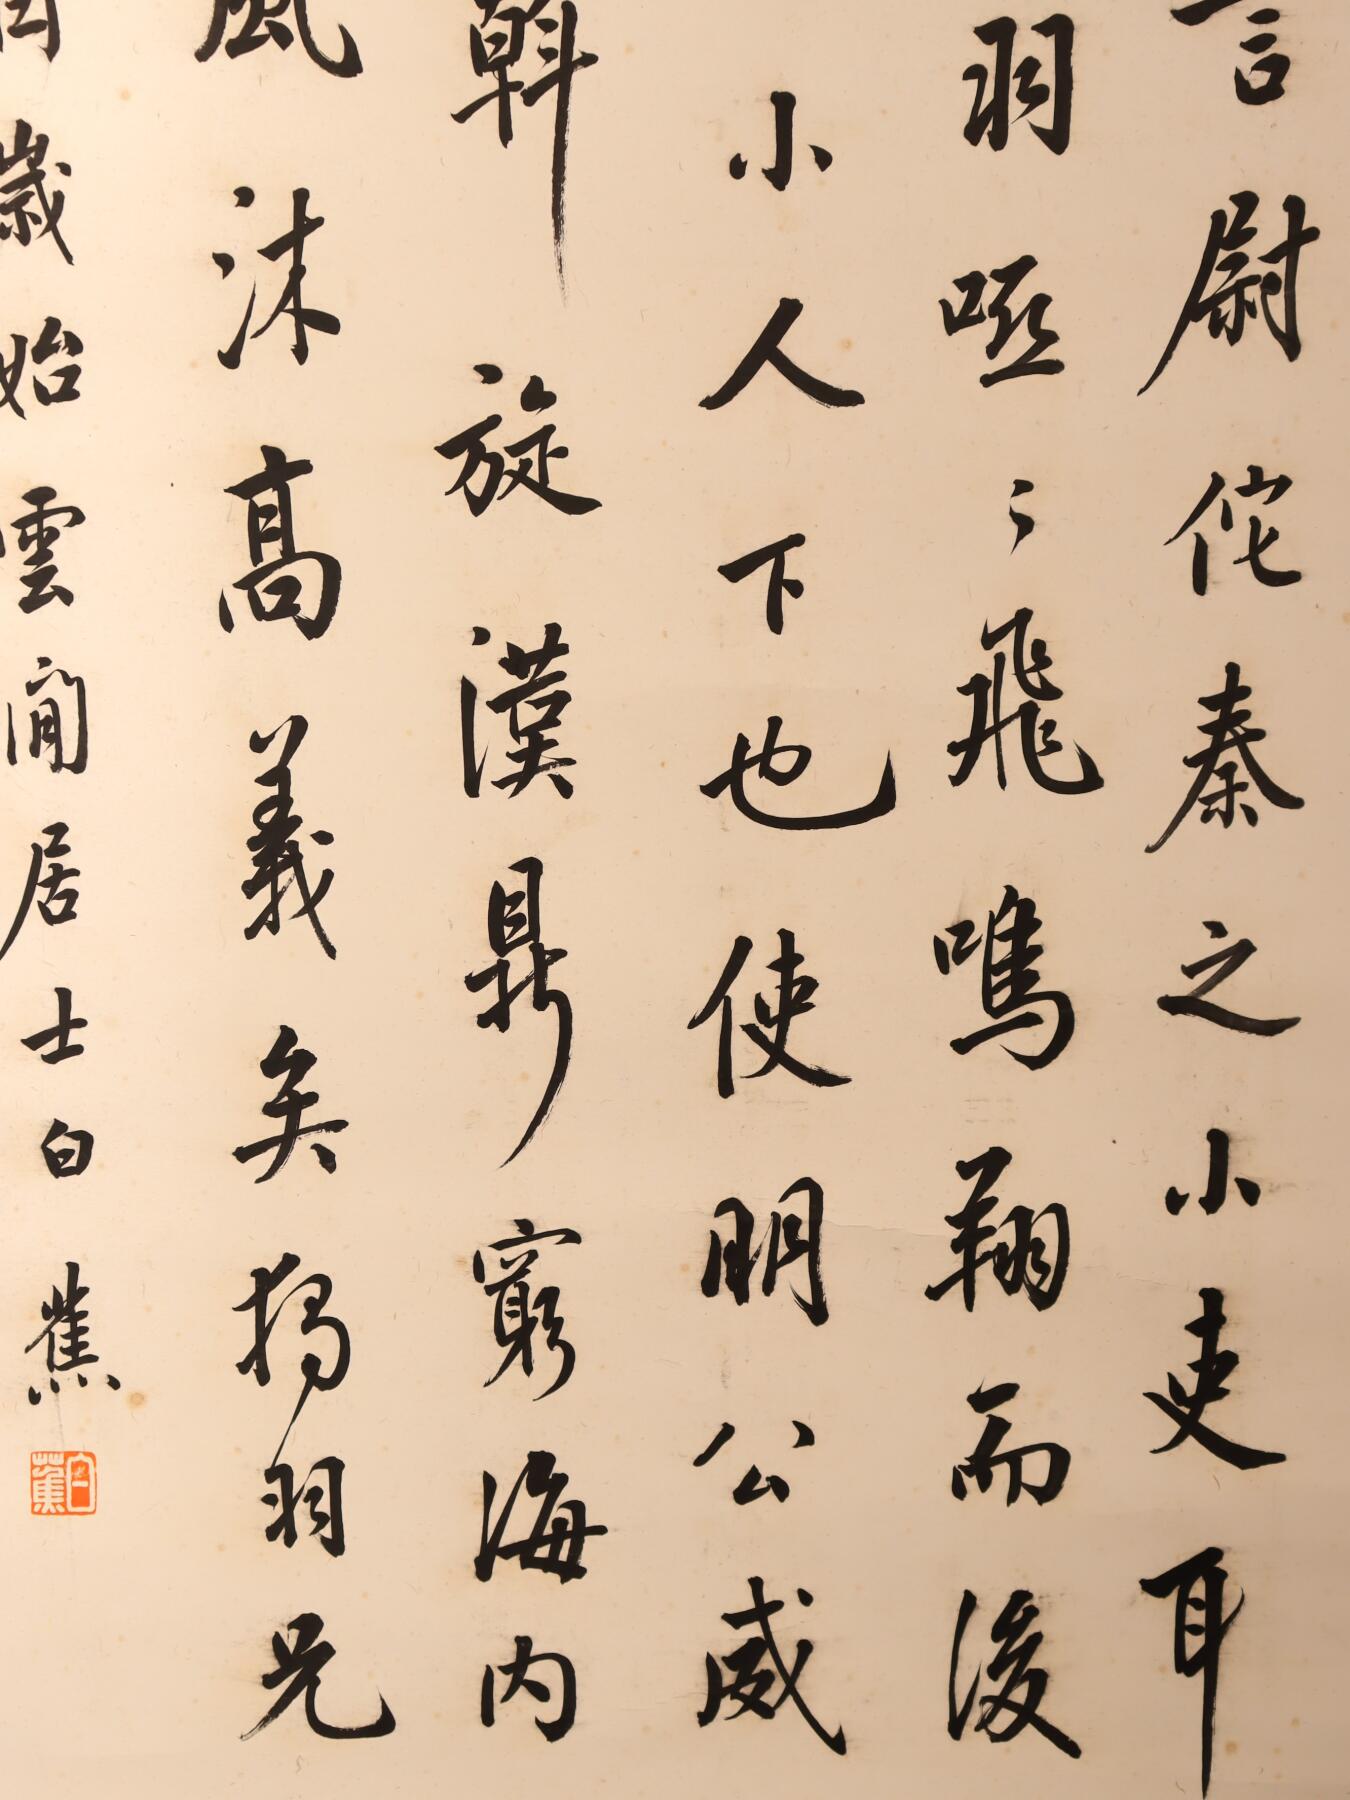 言尉佗秦之小吏耳
羽啞〻飛鳴翔而後
小人下也使明公威
斡旋漢鼎窮海內
風沫高義矣羽兄
歲始雲間居士白蕉
白蕉